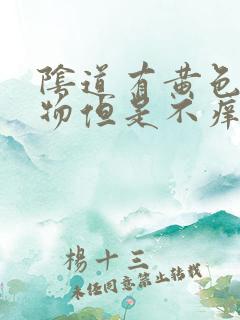 陰道有黄色
物但是不痒
楊十三
未经同意禁止转载